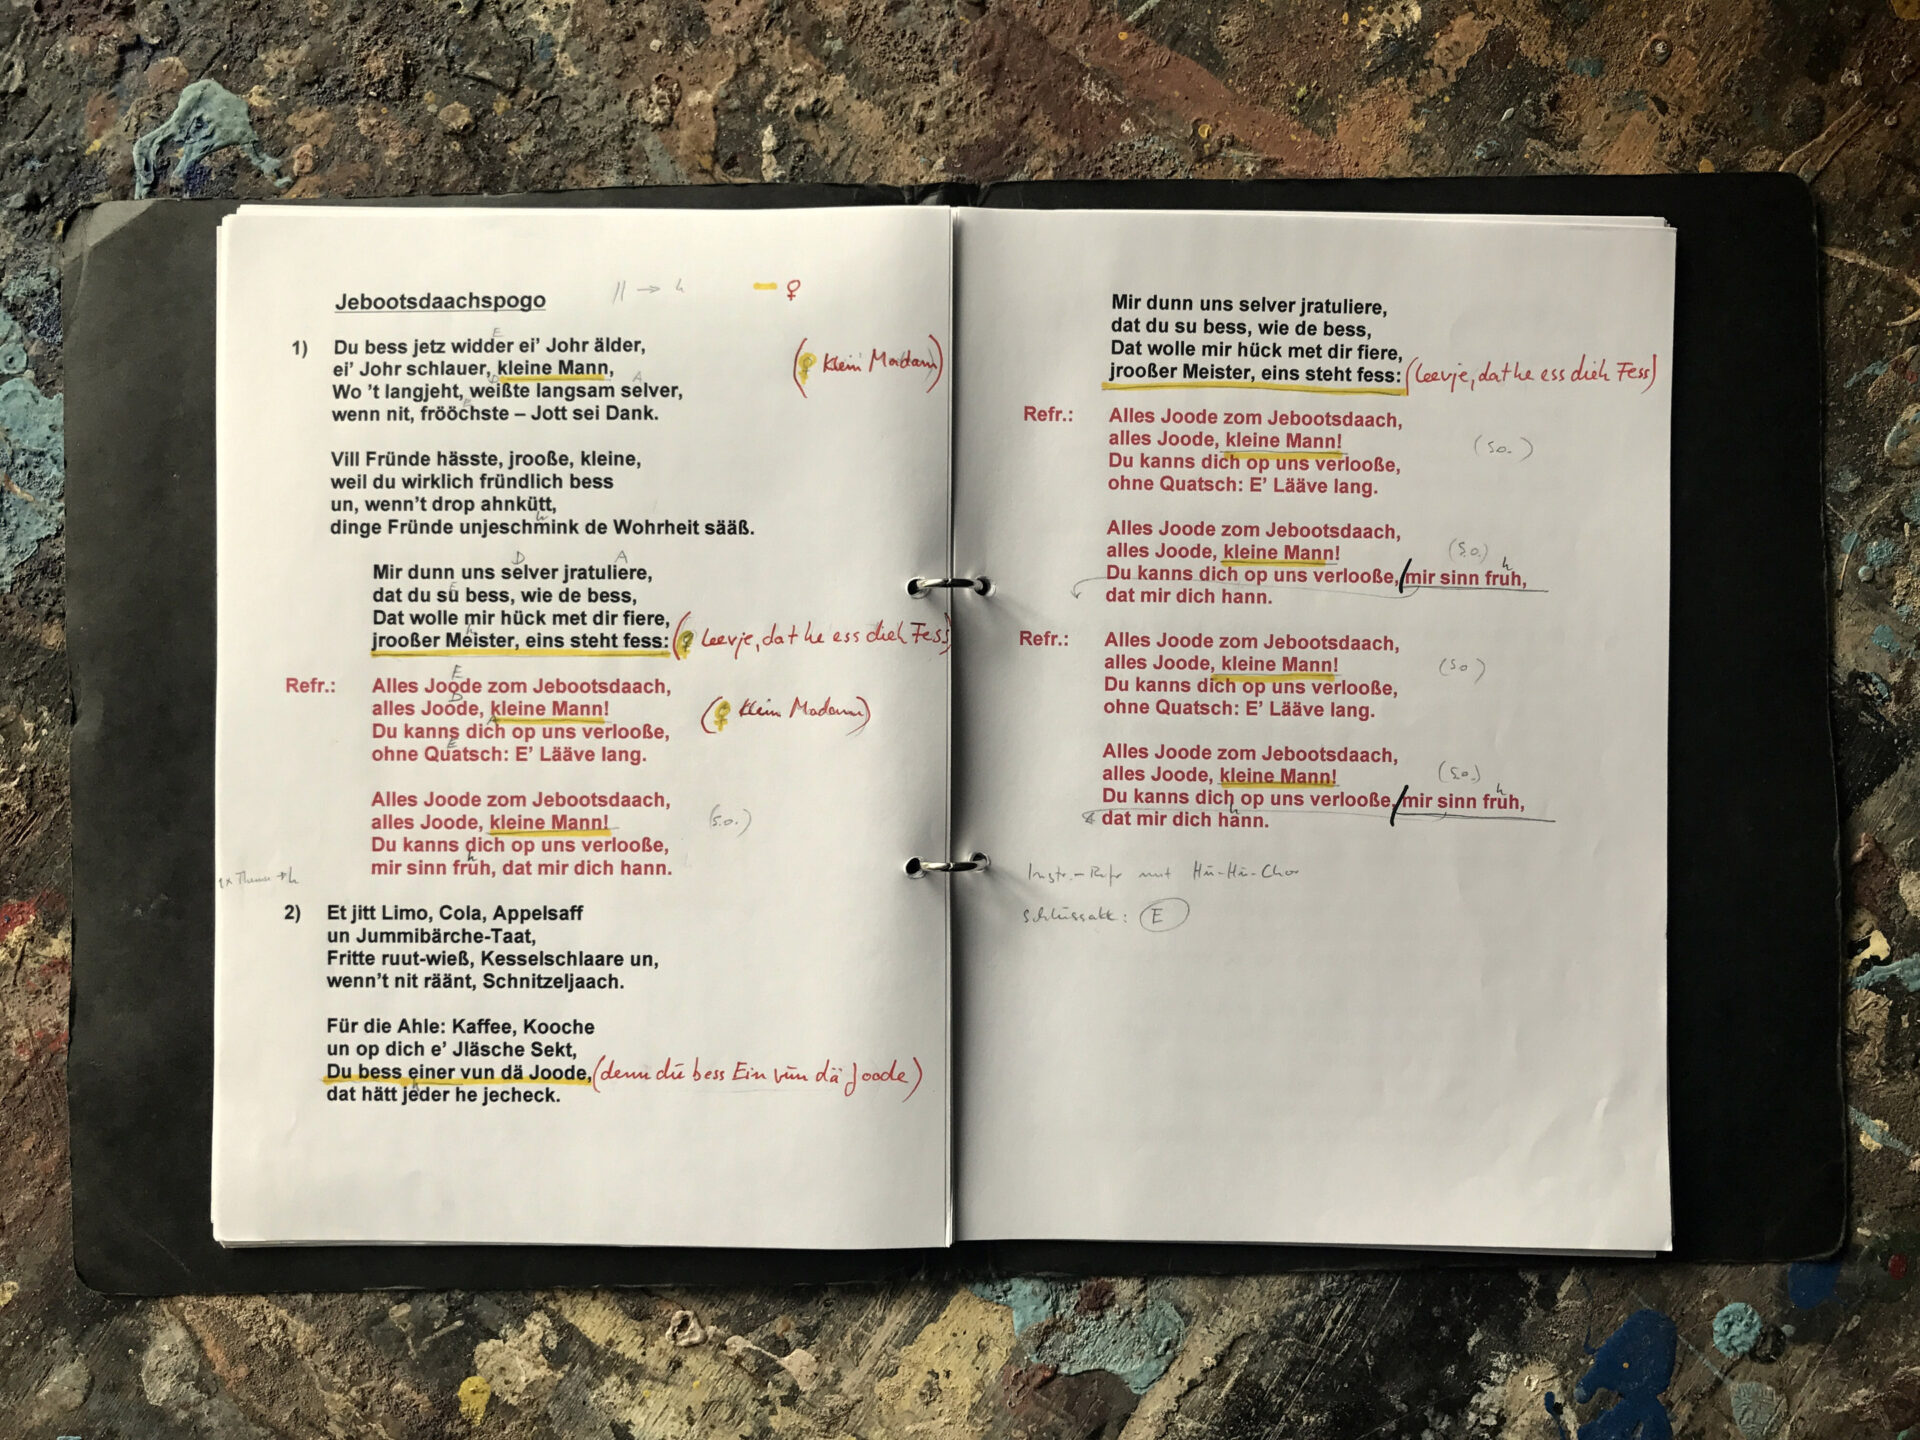 Jebootsdaachspogo
|| → h
♀
E
1) Du bess jetz widder ei’ Johr älder,
ei’ Johr schlauer, kleine Mann,
(♀ Klein Madam)
D A
Wo ’t langjeht, weißte langsam selver,
E
wenn nit, frööchste – Jott sei Dank.
Vill Fründe hässte, jrooße, kleine,
weil du wirklich fründlich bess
un, wenn’t drop ahnkütt,
h
dinge Fründe unjeschmink de Wohrheit sääß.
D A
Mir dunn uns selver jratuliere,
E
dat du su bess, wie de bess,
Dat wolle mir hück met dir fiere,
h
jrooßer Meister, eins steht fess: (♀ Leevje, dat he ess dieh Fess)
E
Refr.: Alles Joode zom Jebootsdaach,
D
alles Joode, kleine Mann! (♀ Klein Madam)
A
Du kanns dich op uns verlooße,
E
ohne Quatsch: E’ Lääve lang.
Alles Joode zom Jebootsdaach,
alles Joode, kleine Mann! (s.o.)
Du kanns dich op uns verlooße,
h
mir sinn früh, dat mir dich hann.
1x Thema → h
2) Et jitt Limo, Cola, Appelsaff
un Jummibärche-Taat,
Fritte ruut-wieß, Kesselschlaare un,
wenn’t nit räänt, Schnitzeljaach.
Für die Ahle: Kaffee, Kooche
un op dich e’ Jläsche Sekt,
Du bess einer vun dä Joode, (denn du bess Ein vun dä Joode)
h
dat hätt jeder he jecheck.
Mir dunn uns selver jratuliere,
dat du su bess, wie de bess,
Dat wolle mir hück met dir fiere,
jrooßer Meister, eins steht fess: (Leevje, dat he ess dieh Fess)
Refr.: Alles Joode zom Jebootsdaach,
alles Joode, kleine Mann! (s.o.)
Du kanns dich op uns verlooße,
ohne Quatsch: E’ Lääve lang.
Alles Joode zom Jebootsdaach,
alles Joode, kleine Mann! (s.o.)
h
Du kanns dich op uns verlooße, / mir sinn fruh,
dat mir dich hann.
Refr.: Alles Joode zom Jebootsdaach,
alles Joode, kleine Mann! (s.o)
Du kanns dich op uns verlooße,
ohne Quatsch: E’ Lääve lang.
Alles Joode zom Jebootsdaach,
alles Joode, kleine Mann! (s.o.)
h
Du kanns dich op uns verlooße, / mir sinn fruh,
h
dat mir dich hann.
Instr.-Refr mit Hu-Hu-Chor
Schlussakk: E